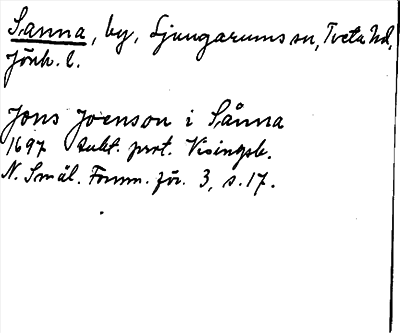 Sanna, by, Ljungarums sn, Tveta hd,
Jönk. l.
Jons Joenson i Sånna
1697 Sukt. prot. Visingsb.
N. Smål. Fornm. för. 3, s. 17.